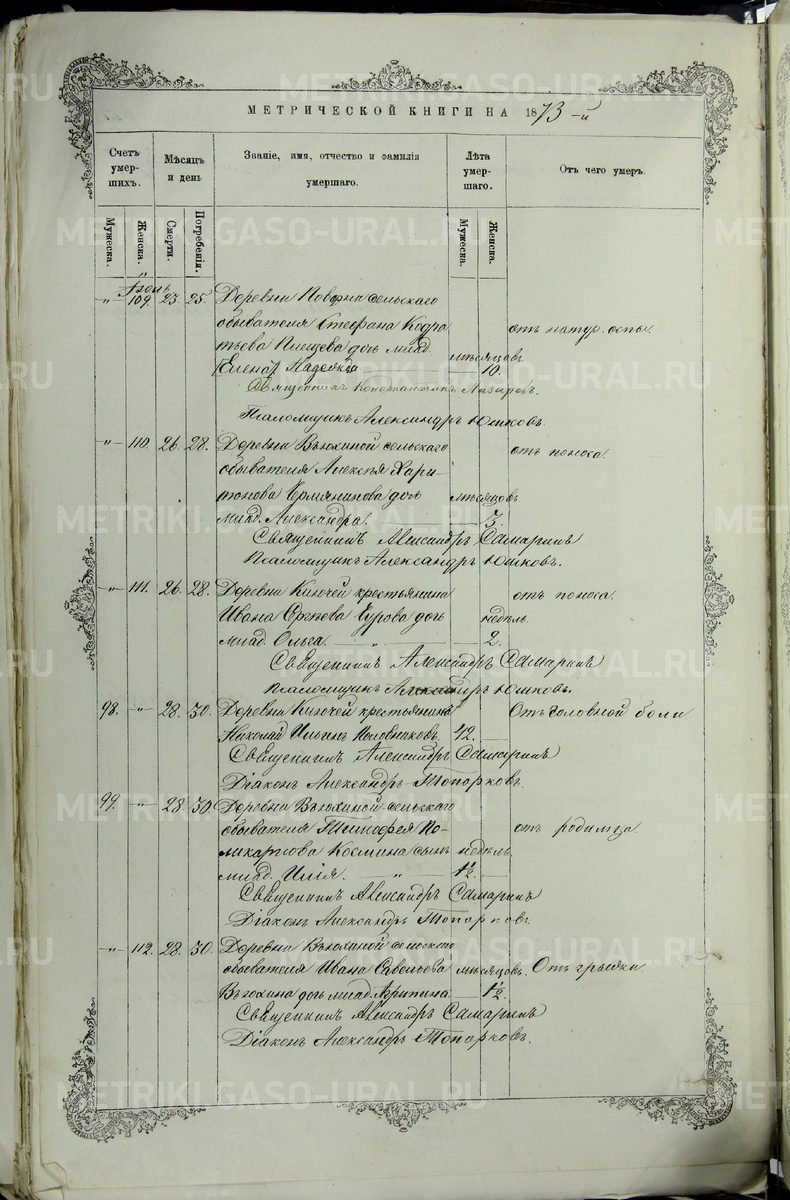 МЕТРИЧЕСКОЙ КНИГИ НА 1873-й
Счетъ умер-шихъ.
Мѣсяцъ и день
Званіе, имя, отчество и фамилія умершаго.
Лѣта умер-шаго.
Отъ чего умеръ.
Мужеска.
Женска.
Смерти.
Погребенія.
Мужеска.
Женска.
Іюль
109. 23. 25. Деревни сельскаго
обывателя Стефана Кодра
тьева Плещева дочь млад. отъ натур. оспы.
[Елена] Надежда мѣсяцовъ 10.
Священникъ Константинъ Лазаревъ.
Псаломщикъ Александръ Юшковъ.
110. 26. 28. Деревни Вьюхиной сельскаго отъ поноса.
обывателя Алексѣя Хари-
тонова дочь мѣсяцовъ
млад. Александра. 3.
Священникъ Александръ Самаринъ
Псаломщикъ Александръ Юшковъ.
111. 26. 28. Деревни Ключей крестьянина отъ поноса.
Ивана Гурова дочь недѣль.
млад. Ольга. 2.
Священникъ Александръ Самаринъ
Псаломщикъ Александръ Юшковъ.
98. " 28. 30. Деревни Ключей крестьянинъ Отъ головной боли
Николай Ильинъ Половниковъ. 42.
Священникъ Александръ Самаринъ
Діаконъ Александръ Топорковъ.
99. " 28. 30. Деревни Вьюхиной сельскаго
обывателя Тимофея По- отъ родимца
ликарпова Космина сынъ недѣль.
млад. Илія. " 1½.
Священникъ Александръ Самаринъ
Діаконъ Александръ Топорковъ.
" 112. 28. 30. Деревни Вьюхиной сельскаго
обывателя Ивана Савельева мѣсяцовъ. Отъ грыжи.
Вьюхина дочь млад. Агрипина. 1½.
Священникъ Александръ Самаринъ
Діаконъ Александръ Топорковъ.
METRIKI.GASO-URAL.RU